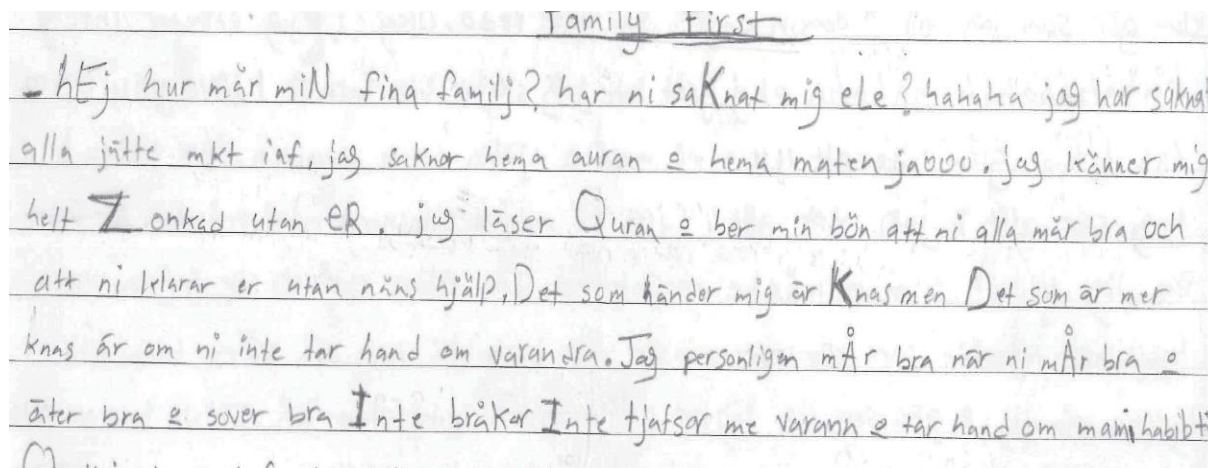 Family First
- hEj hur mår miN fina familj? har ni saKnat mig eLe? hahaha jag har saknat
alla jätte mkt iaf, jag saknar hema auran o hema maten jaooo. jag känner mig
helt Zonkad utan eR. jag läser Quran o ber min bön att ni alla mår bra och
att ni klarar er utan nåns hjälp, Det som händer mig är Knas men Det som är mer
knas är om ni inte tar hand om varandra. Jag personligen mÅr bra när ni mÅr bra o
äter bra o sover bra Inte bråkar Inte tjafsar me varann o tar hand om mami habibti